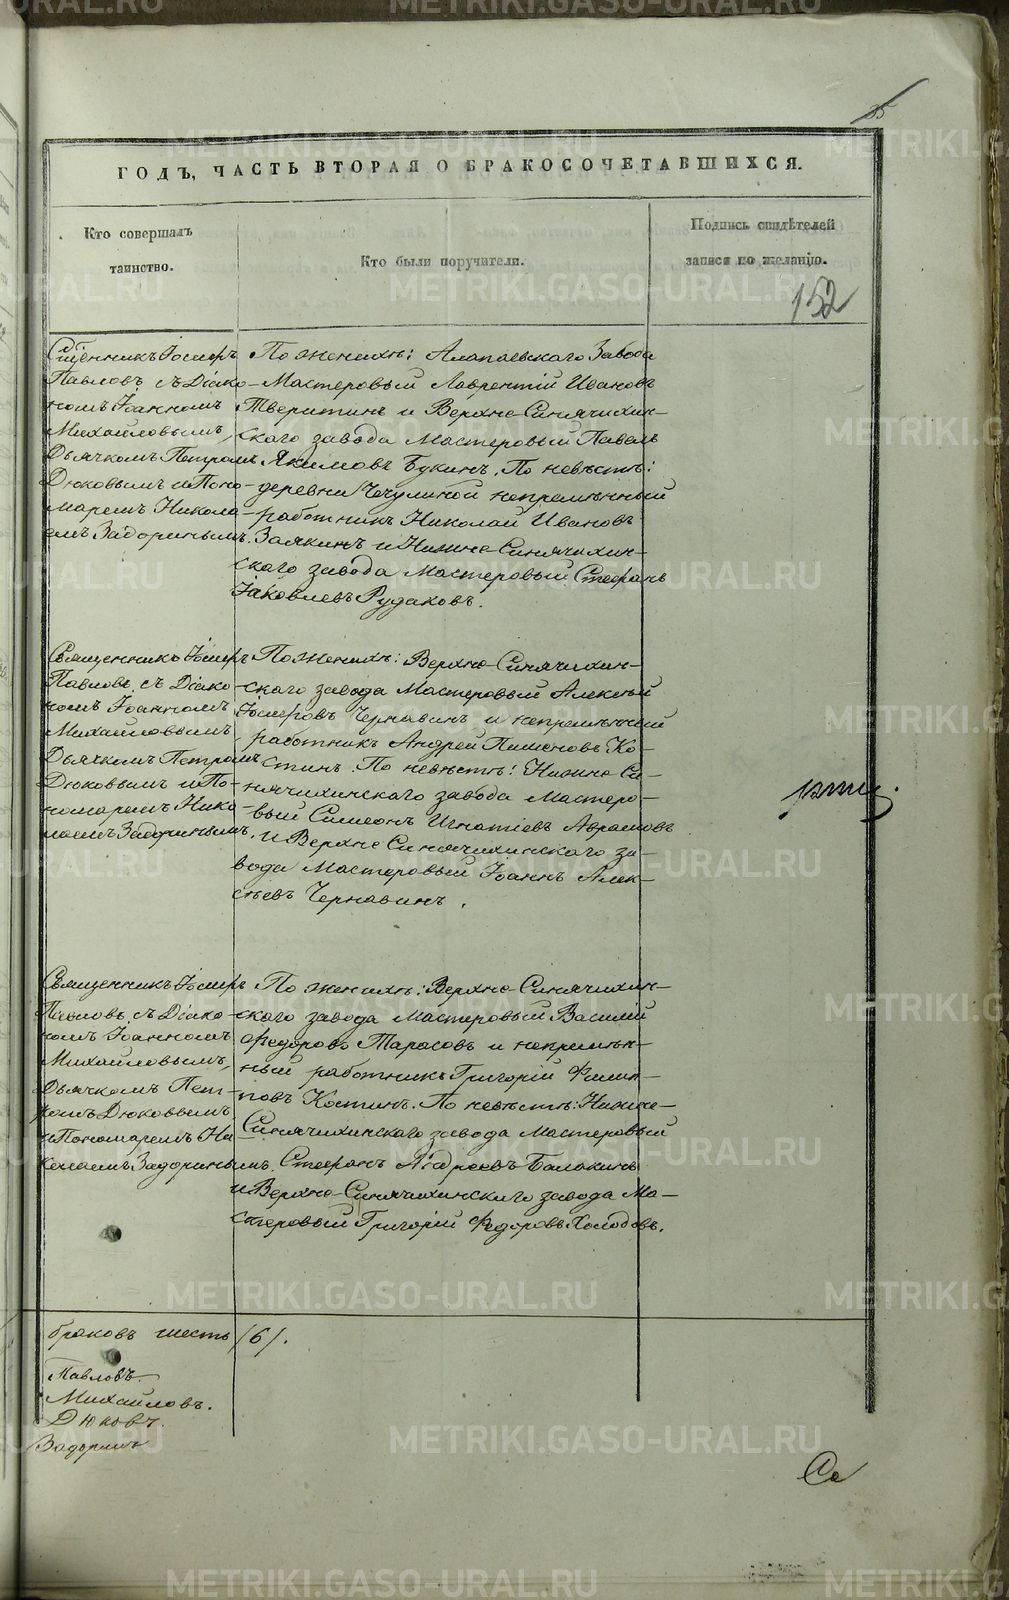 35
ГОДЪ, ЧАСТЬ ВТОРАЯ О БРАКОСОЧЕТАВШИХСЯ.
Кто совершалъ
таинство.
Кто были поручители.
Подпись свидѣтелей
записи по желанію.
152
Сщенникъ Іосифъ
Павловъ съ Діако-
номъ Іоанномъ
Михайловымъ,
Дьячкомъ Петромъ
Дюковымъ и Поно-
маремъ Никола-
емъ Задоринымъ.
По женихѣ: Алапаевскаго Завода
Мастеровый Лаврентій Ивановъ
Тверитинъ и Верхне-Синячихин-
скаго завода Мастеровый Павелъ
Якимовъ Букинъ. По невѣстѣ:
деревни Чечулиной непремѣнный
работникъ Николай Ивановъ
Заякинъ и Нижне-Синячихин-
скаго завода Мастеровый Стефанъ
Іаковлевъ Рудаковъ.
Священникъ Іосифъ
Павловъ съ Діако-
номъ Іоанномъ
Михайловымъ,
Дьячкомъ Петромъ
Дюковымъ и По-
номаремъ Нико-
лаемъ Задоринымъ.
По женихѣ: Верхне-Синячихин-
скаго завода Мастеровый Алексѣй
Іосифовъ Чернавинъ и непремѣнный
работникъ Андрей Пименовъ Ко-
стинъ. По невѣстѣ: Нижне-Си-
нячихинскаго завода Мастеро-
вый Симеонъ Игнатіевъ Аврамовъ
и Верхне Синячихинскаго за-
вода Мастеровый Іоаннъ Алек-
сѣевъ Чернавинъ.
Священникъ Іосифъ
Павловъ съ Діако-
номъ Іоанномъ
Михайловымъ,
Дьячкомъ Пет-
ромъ Дюковымъ
и Пономаремъ Ни-
колаемъ Задоринымъ.
По женихѣ: Верхне-Синячихин-
скаго завода Мастеровый Василій
Ѳедоровъ Тарасовъ и непремѣн-
ный работникъ Григорій Филип-
повъ Костинъ. По невѣстѣ: Нижне-
Синячихинскаго завода Мастеровый
Стефанъ Андреевъ Балакинъ
и Верхне-Синячихинскаго завода Ма-
стеровый Григорій Ѳедоровъ Холодовъ.
браковъ шесть /6/.
Павловъ.
Михайловъ.
Дюковъ.
Задоринъ
Св
METRIKI.GASO-URAL.RU